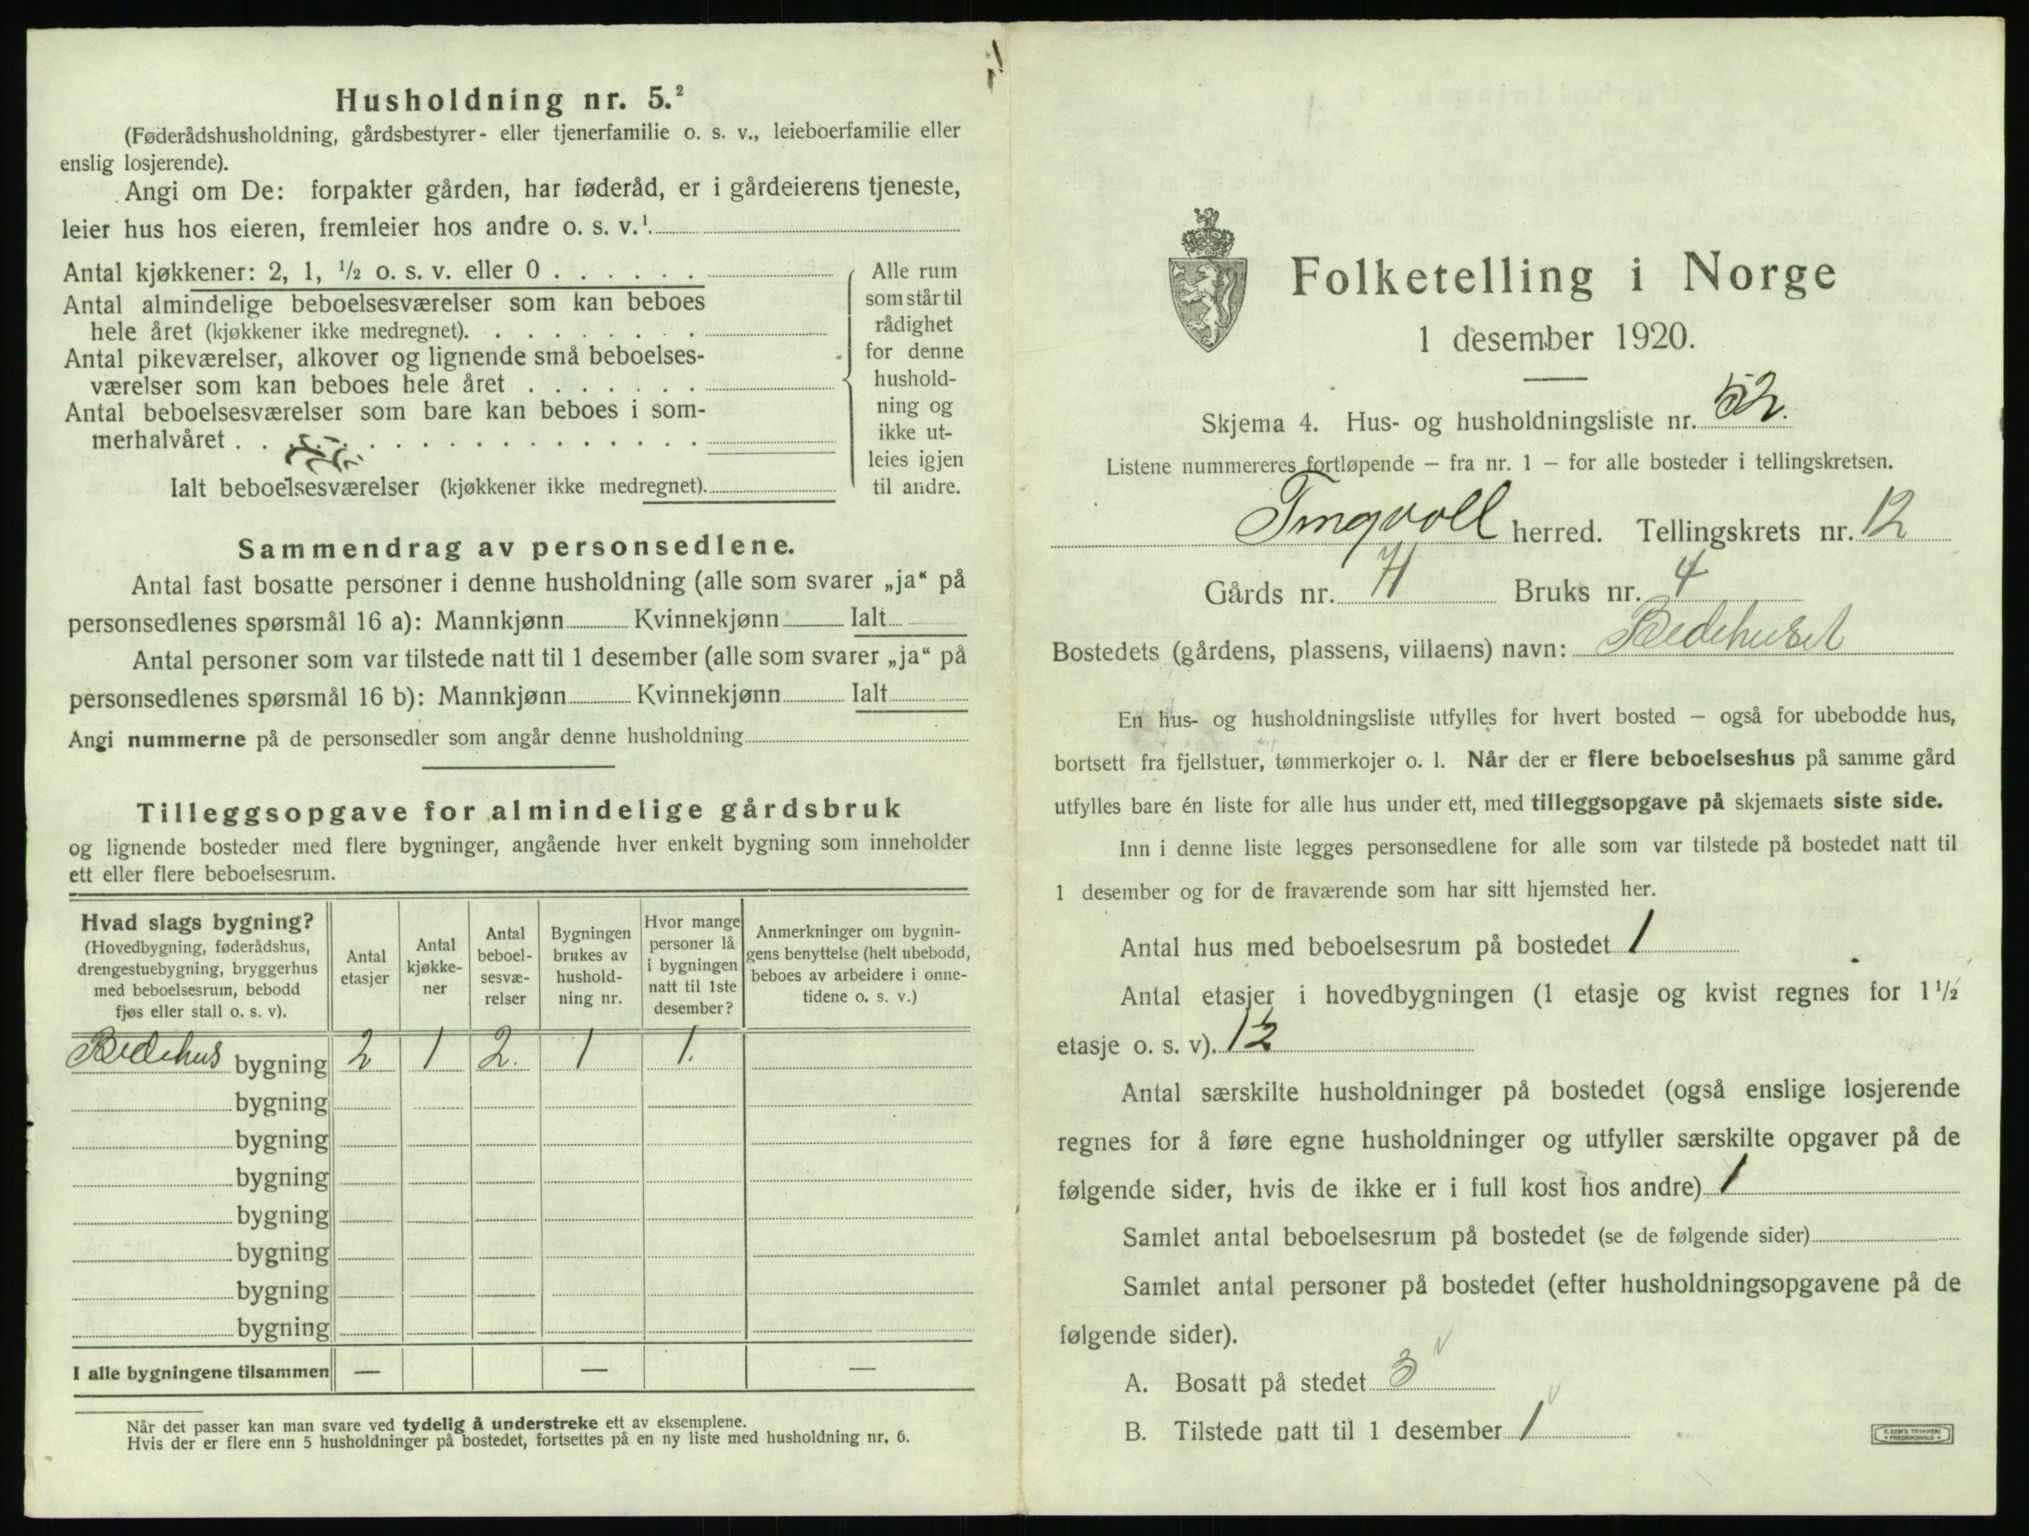 Husholdning nr. 5.²
(Føderådshusholdning, gårdsbestyrer- eller tjenerfamilie o. s. v., leieboerfamilie eller
enslig losjerende).
Angi om De: forpakter gården, har føderåd, er i gårdeierens tjeneste,
leier hus hos eieren, fremleier hos andre o. s. v.¹
Antal kjøkkener: 2, 1, ½ o. s. v. eller 0 . . . . . .
Antal almindelige beboelsesværelser som kan beboes
hele året (kjøkkener ikke medregnet). . . . . . . . .
Antal pikeværelser, alkover og lignende små beboelses-
værelser som kan beboes hele året . . . . . . .
Antal beboelsesværelser som bare kan beboes i som-
merhalvåret . . . . . . . . . . . . . . . . .
Ialt beboelsesværelser (kjøkkener ikke medregnet).
Alle rum
som står til
rådighet
for denne
hushold-
ning og
ikke ut-
leies igjen
til andre.
Sammendrag av personsedlene.
Antal fast bosatte personer i denne husholdning (alle som svarer „ja“ på
personsedlenes spørsmål 16 a): Mannkjønn Kvinnekjønn Ialt
Antal personer som var tilstede natt til 1 desember (alle som svarer „ja“ på
personsedlenes spørsmål 16 b): Mannkjønn Kvinnekjønn Ialt
Angi nummerne på de personsedler som angår denne husholdning
Tilleggsopgave for almindelige gårdsbruk
og lignende bosteder med flere bygninger, angående hver enkelt bygning som inneholder
ett eller flere beboelsesrum.
Hvad slags bygning?
(Hovedbygning, føderådshus,
drengestuebygning, bryggerhus
med beboelsesrum, bebodd
fjøs eller stall o. s. v).
Antal
etasjer
Antal
kjøkke-
ner
Antal
beboel-
sesvæ-
relser
Bygningen
brukes av
hushold-
ning nr.
Hvor mange
personer lå
i bygningen
natt til 1ste
desember?
Anmerkninger om bygnin-
gens benyttelse (helt ubebodd,
beboes av arbeidere i onne-
tidene o. s. v.)
Bedehus bygning 2 1 2. 1 1.
bygning
bygning
bygning
bygning
bygning
bygning
bygning
I alle bygningene tilsammen — — —
Når det passer kan man svare ved tydelig å understreke ett av eksemplene.
Hvis der er flere enn 5 husholdninger på bostedet, fortsettes på en ny liste med husholdning nr. 6.
Folketelling i Norge
1 desember 1920.
Skjema 4. Hus- og husholdningsliste nr. 52.
Listene nummereres fortløpende – fra nr. 1 – for alle bosteder i tellingskretsen.
Tingvoll herred. Tellingskrets nr. 12
Gårds nr. Bruks nr. 4
Bostedets (gårdens, plassens, villaens) navn: Bedehuset
En hus- og husholdningsliste utfylles for hvert bosted – også for ubebodde hus,
bortsett fra fjellstuer, tømmerkojer o. l. Når der er flere beboelseshus på samme gård
utfylles bare én liste for alle hus under ett, med tilleggsopgave på skjemaets siste side.
Inn i denne liste legges personsedlene for alle som var tilstede på bostedet natt til
1 desember og for de fraværende som har sitt hjemsted her.
Antal hus med beboelsesrum på bostedet 1
Antal etasjer i hovedbygningen (1 etasje og kvist regnes for 1½
etasje o. s. v).
Antal særskilte husholdninger på bostedet (også enslige losjerende
regnes for å føre egne husholdninger og utfyller særskilte opgaver på de
følgende sider, hvis de ikke er i full kost hos andre) 1
Samlet antal beboelsesrum på bostedet (se de følgende sider)
Samlet antal personer på bostedet (efter husholdningsopgavene på de
følgende sider).
A. Bosatt på stedet 3
B. Tilstede natt til 1 desember 1
E. SEM'S TRYKKERI
FREDRIKSHALD